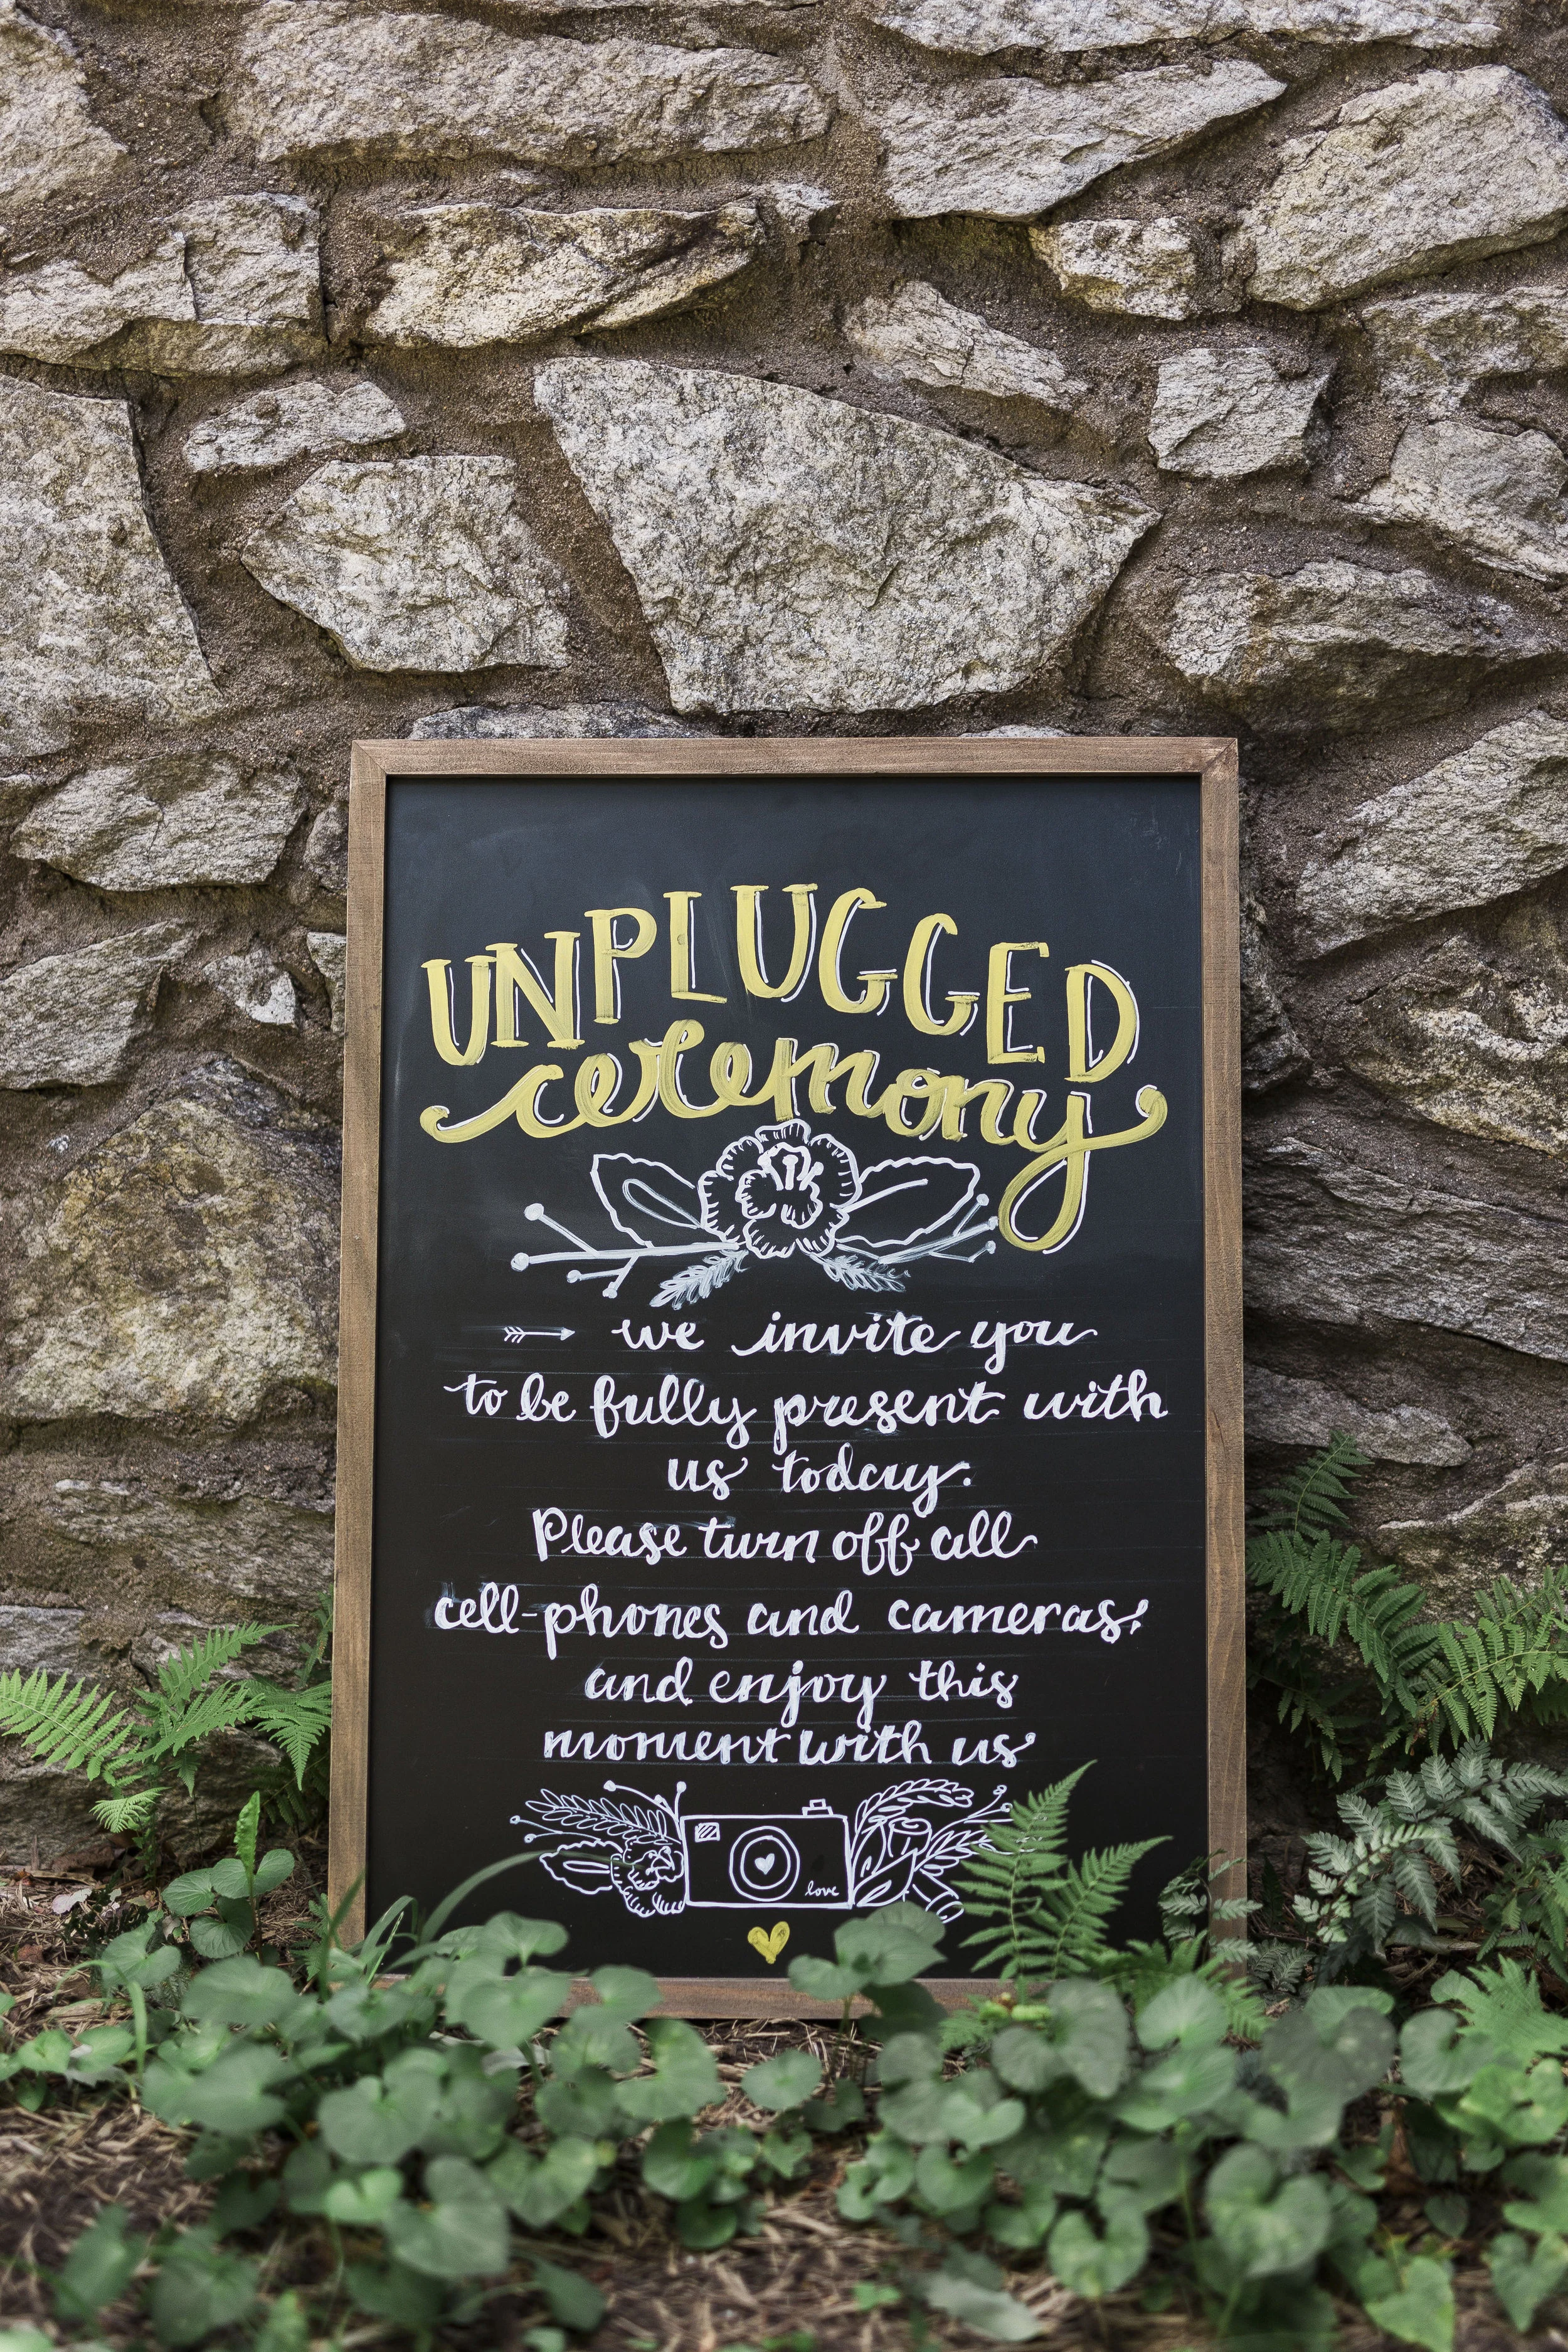 UNPLUGGED
ceremony
we invite you
to be fully present with
us today.
Please turn off all
cell-phones and cameras,
and enjoy this
moment with us
love